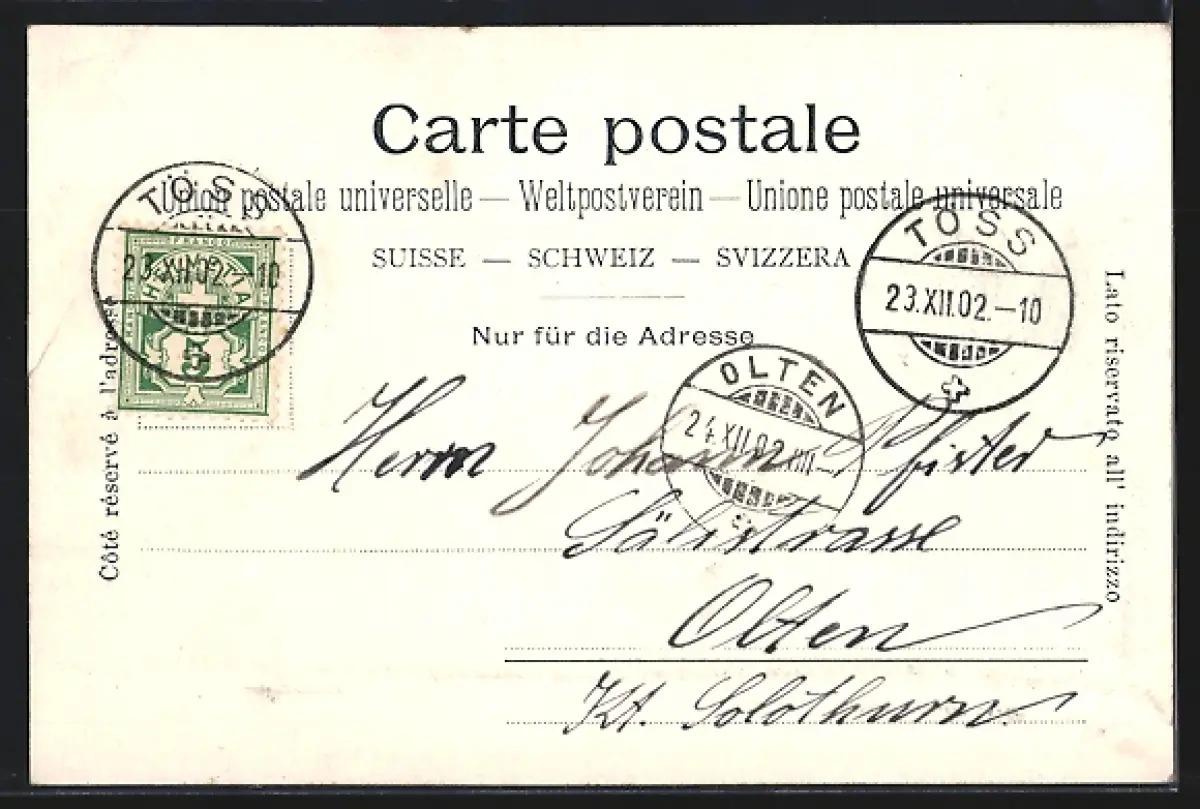 Carte postale
Union postale universelle — Weltpostverein — Unione postale universale
SUISSE — SCHWEIZ — SVIZZERA
Nur für die Adresse
TÖSS
23.XII.02.-10
FRANCO
HELVETIA
FRANCO
FRANCO
5
TÖSS
23.XII.02.-10
OLTEN
24.XII.02.VIII-
Côté réservé à l'adresse
Lato riservato all' indirizzo
Herrn Johann Pfister
Sälistrasse
Olten
Kt. Solothurn